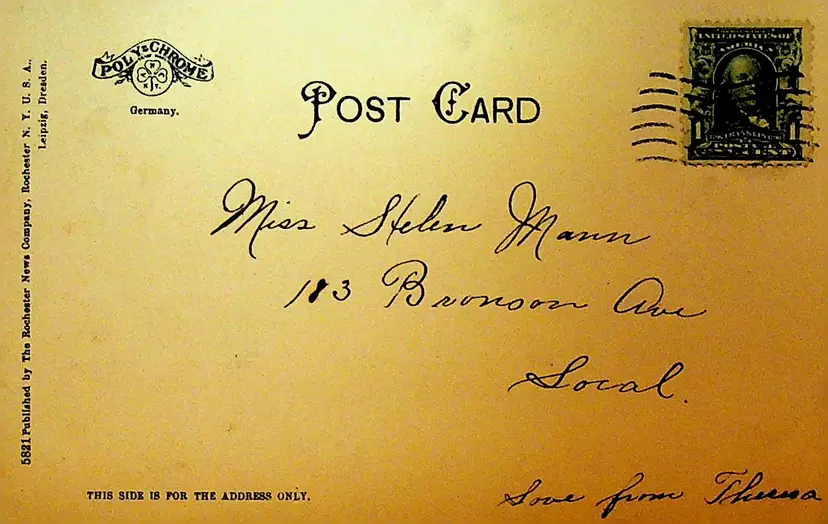 POLY-CHROME
Germany.
POST CARD
UNITED STATES OF
AMERICA
1 1
5821 Published by The Rochester News Company, Rochester N. Y. U. S. A.,
Leipzig, Dresden.
Miss Helen Mann
183 Bronson Ave
Local.
THIS SIDE IS FOR THE ADDRESS ONLY.
Love from